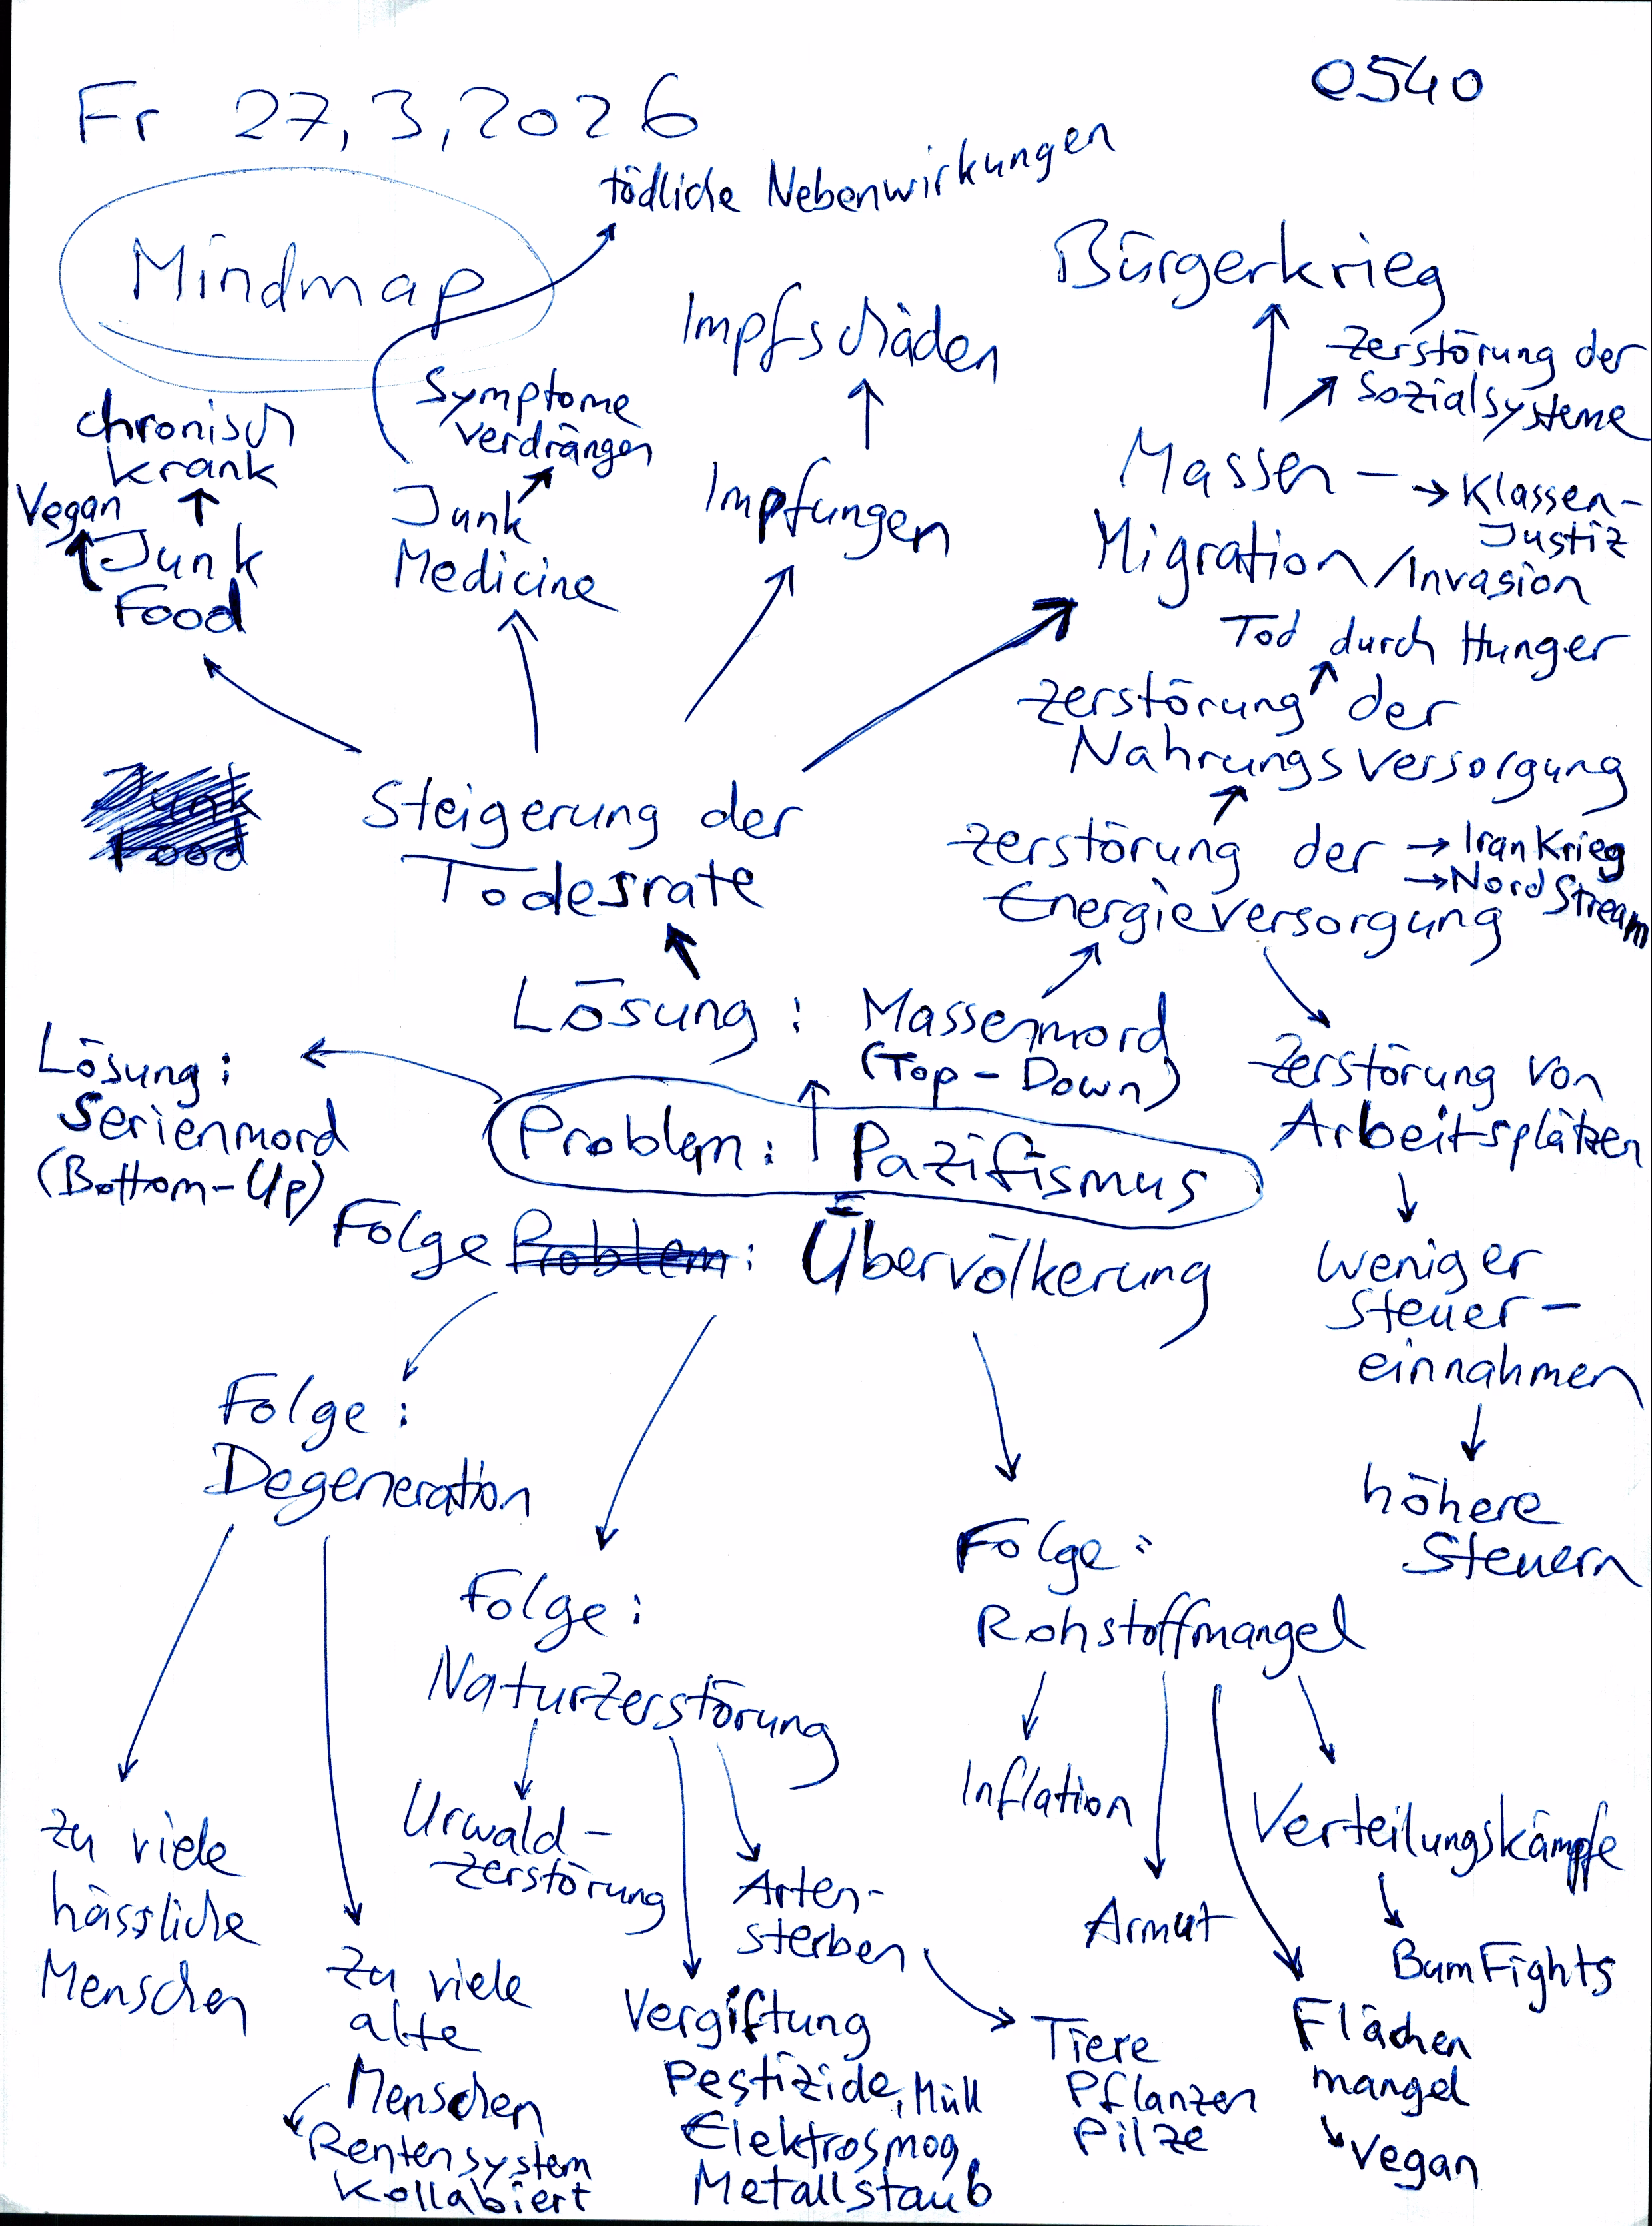 0540
Fr 27.3.2026
tödliche Nebenwirkungen
Mindmap
Bürgerkrieg
Impfschäden
Zerstörung der
Sozialsysteme
Symptome
verdrängen
chronisch
krank
Vegan
Junk
Food
Junk
Medicine
Impfungen
Massen-
Migration/Invasion
→ Klassen-
Justiz
Tod durch Hunger
Zerstörung der
Nahrungsversorgung
Junk
Food
Steigerung der
Todesrate
Zerstörung der
Energieversorgung
→ Iran Krieg
→ Nord Stream
Lösung: Massenmord
(Top-Down)
Lösung:
Serienmord
(Bottom-Up)
Problem: Pazifismus
Zerstörung von
Arbeitsplätzen
Folge Problem: Übervölkerung
weniger
Steuer-
einnahmen
höhere
Steuern
Folge:
Degeneration
Folge:
Naturzerstörung
Folge:
Rohstoffmangel
zu viele
hässliche
Menschen
zu viele
alte
Menschen
Rentensystem
kollabiert
Urwald-
zerstörung
Arten-
sterben
Vergiftung
Pestizide, Müll
Elektrosmog,
Metallstaub
Tiere
Pflanzen
Pilze
Inflation
Armut
Verteilungskämpfe
BumFights
Flächen
mangel
Vegan